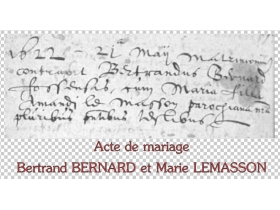 1622 - 21 Maij Matrimonium
contraxit Bertrandus Bernard
fossensis, cum Maria filia
Amandi le Masson parochiana nra
pluribus testibus
Acte de mariage
Bertrand BERNARD et Marie LEMASSON